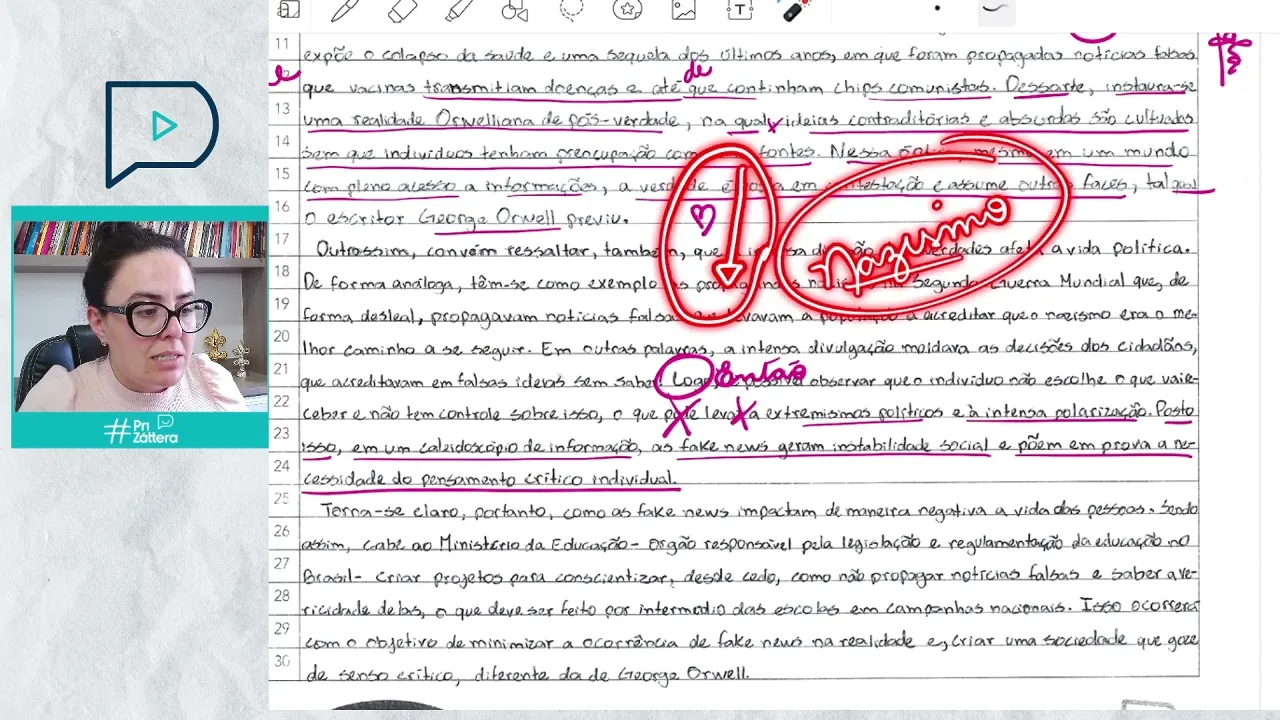 11 expõe o colapso da saúde e uma sequela dos últimos anos, em que foram propagadas notícias falsas
de
que vacinas transmitiam doenças e até que continham chips comunistas. Dessarte, instaura-se
13 uma realidade Orwelliana de pós-verdade, na qual ideias contraditórias e absurdas são cultuadas
14 sem que indivíduos tenham preocupação com fontes. Nessa mesmo em um mundo
15 com pleno acesso a informações, a verdade é em contestação e assume outras faces, tal qual
16 o escritor George Orwell previu.
17 Outrossim, convém ressaltar, também, que verdades afeta a vida política.
nazismo
18 De forma análoga, têm-se como exemplo Segunda Guerra Mundial que, de
19 forma desleal, propagavam notícias falsas levavam a população a acreditar que o nazismo era o me-
20 lhor caminho a se seguir. Em outras palavras, a intensa divulgação moldava as decisões dos cidadãos,
Então
21 que acreditavam em falsas ideias sem saber. Logo, observar que o indivíduo não escolhe o que vai re-
22 ceber e não tem controle sobre isso, o que pode levar a extremismos políticos e à intensa polarização. Posto
23 isso, em um caleidoscópio de informação, as fake news geram instabilidade social e põem em prova a ne-
24 cessidade do pensamento crítico individual.
25 Torna-se claro, portanto, como as fake news impactam de maneira negativa a vida das pessoas. Sendo
26 assim, cabe ao Ministério da Educação- órgão responsável pela legislação e regulamentação da educação no
27 Brasil- criar projetos para conscientizar, desde cedo, como não propagar notícias falsas e saber a ve-
28 ricidade delas, o que deve ser feito por intermédio das escolas em campanhas nacionais. Isso ocorrerá
29 com o objetivo de minimizar a ocorrência de fake news na realidade e, criar uma sociedade que goze
30 de senso crítico, diferente da de George Orwell.
#Pri Záttera